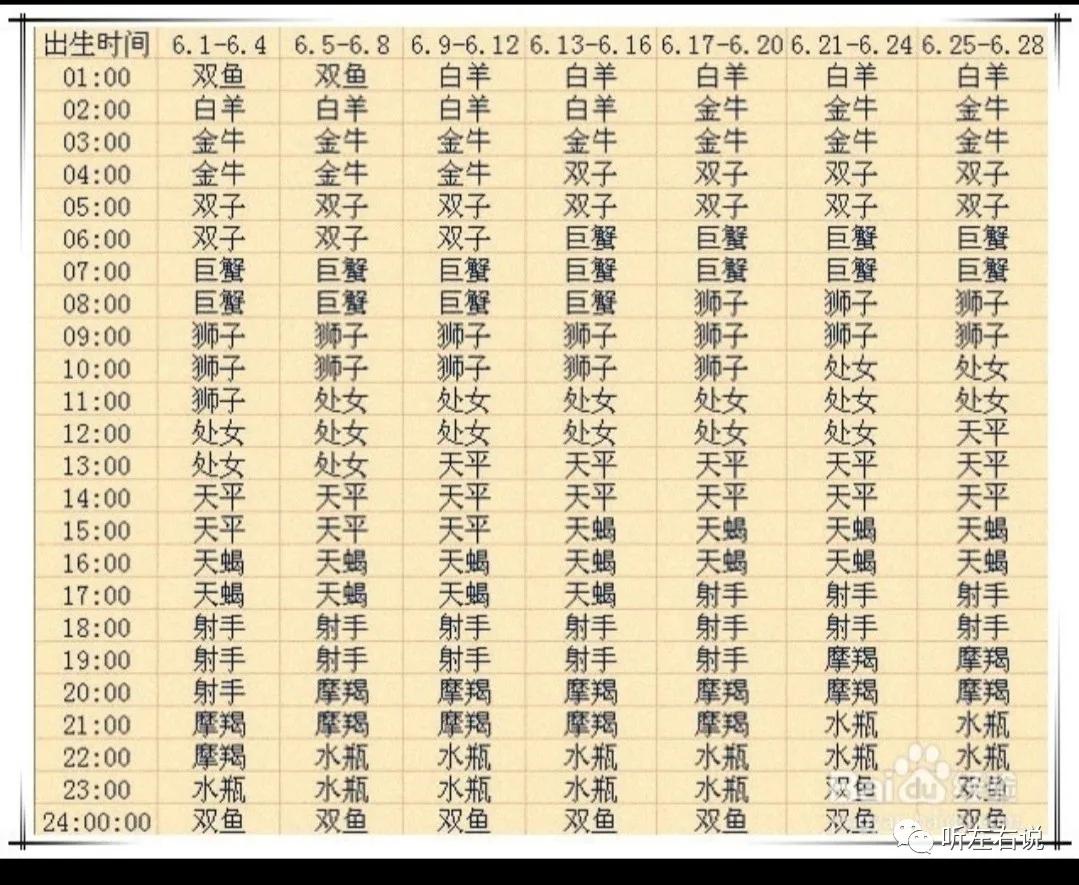 出生时间 6.1-6.4 6.5-6.8 6.9-6.12 6.13-6.16 6.17-6.20 6.21-6.24 6.25-6.28
01:00 双鱼 双鱼 白羊 白羊 白羊 白羊 白羊
02:00 白羊 白羊 白羊 白羊 金牛 金牛 金牛
03:00 金牛 金牛 金牛 金牛 金牛 金牛 金牛
04:00 金牛 金牛 金牛 双子 双子 双子 双子
05:00 双子 双子 双子 双子 双子 双子 双子
06:00 双子 双子 双子 巨蟹 巨蟹 巨蟹 巨蟹
07:00 巨蟹 巨蟹 巨蟹 巨蟹 巨蟹 巨蟹 巨蟹
08:00 巨蟹 巨蟹 巨蟹 巨蟹 狮子 狮子 狮子
09:00 狮子 狮子 狮子 狮子 狮子 狮子 狮子
10:00 狮子 狮子 狮子 狮子 狮子 处女 处女
11:00 狮子 处女 处女 处女 处女 处女 处女
12:00 处女 处女 处女 处女 处女 处女 天平
13:00 处女 处女 天平 天平 天平 天平 天平
14:00 天平 天平 天平 天平 天平 天平 天平
15:00 天平 天平 天平 天蝎 天蝎 天蝎 天蝎
16:00 天蝎 天蝎 天蝎 天蝎 天蝎 天蝎 天蝎
17:00 天蝎 天蝎 天蝎 天蝎 射手 射手 射手
18:00 射手 射手 射手 射手 射手 射手 射手
19:00 射手 射手 射手 射手 射手 摩羯 摩羯
20:00 射手 摩羯 摩羯 摩羯 摩羯 摩羯 摩羯
21:00 摩羯 摩羯 摩羯 摩羯 摩羯 水瓶 水瓶
22:00 摩羯 水瓶 水瓶 水瓶 水瓶 水瓶 水瓶
23:00 水瓶 水瓶 水瓶 水瓶 水瓶 双鱼 双鱼
24:00:00 双鱼 双鱼 双鱼 双鱼 双鱼 双鱼 双鱼
Baidu
听左右说